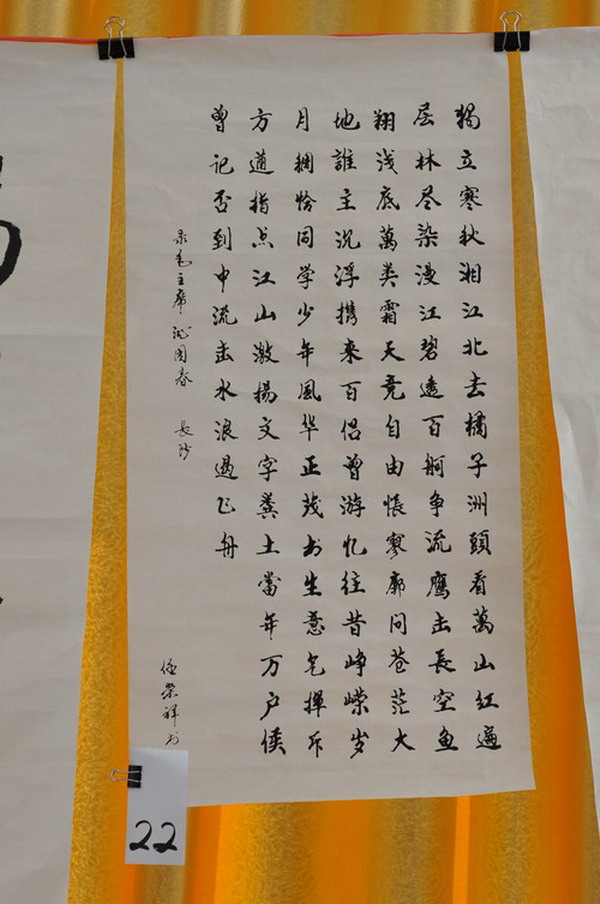 獨立寒秋湘江北去橘子洲頭看萬山红遍
层林尽染漫江碧透百舸争流鷹击長空鱼
翔浅底萬类霜天竞自由悵寥廓问苍茫大
地誰主沉浮携来百侣曾游忆往昔峥嵘岁
月稠恰同学少年風华正茂书生意气揮斥
方遒指点江山激揚文字粪土當年万户侯
曾记否到中流击水浪遏飞舟
录毛主席沁园春 長沙
荣祥书
22